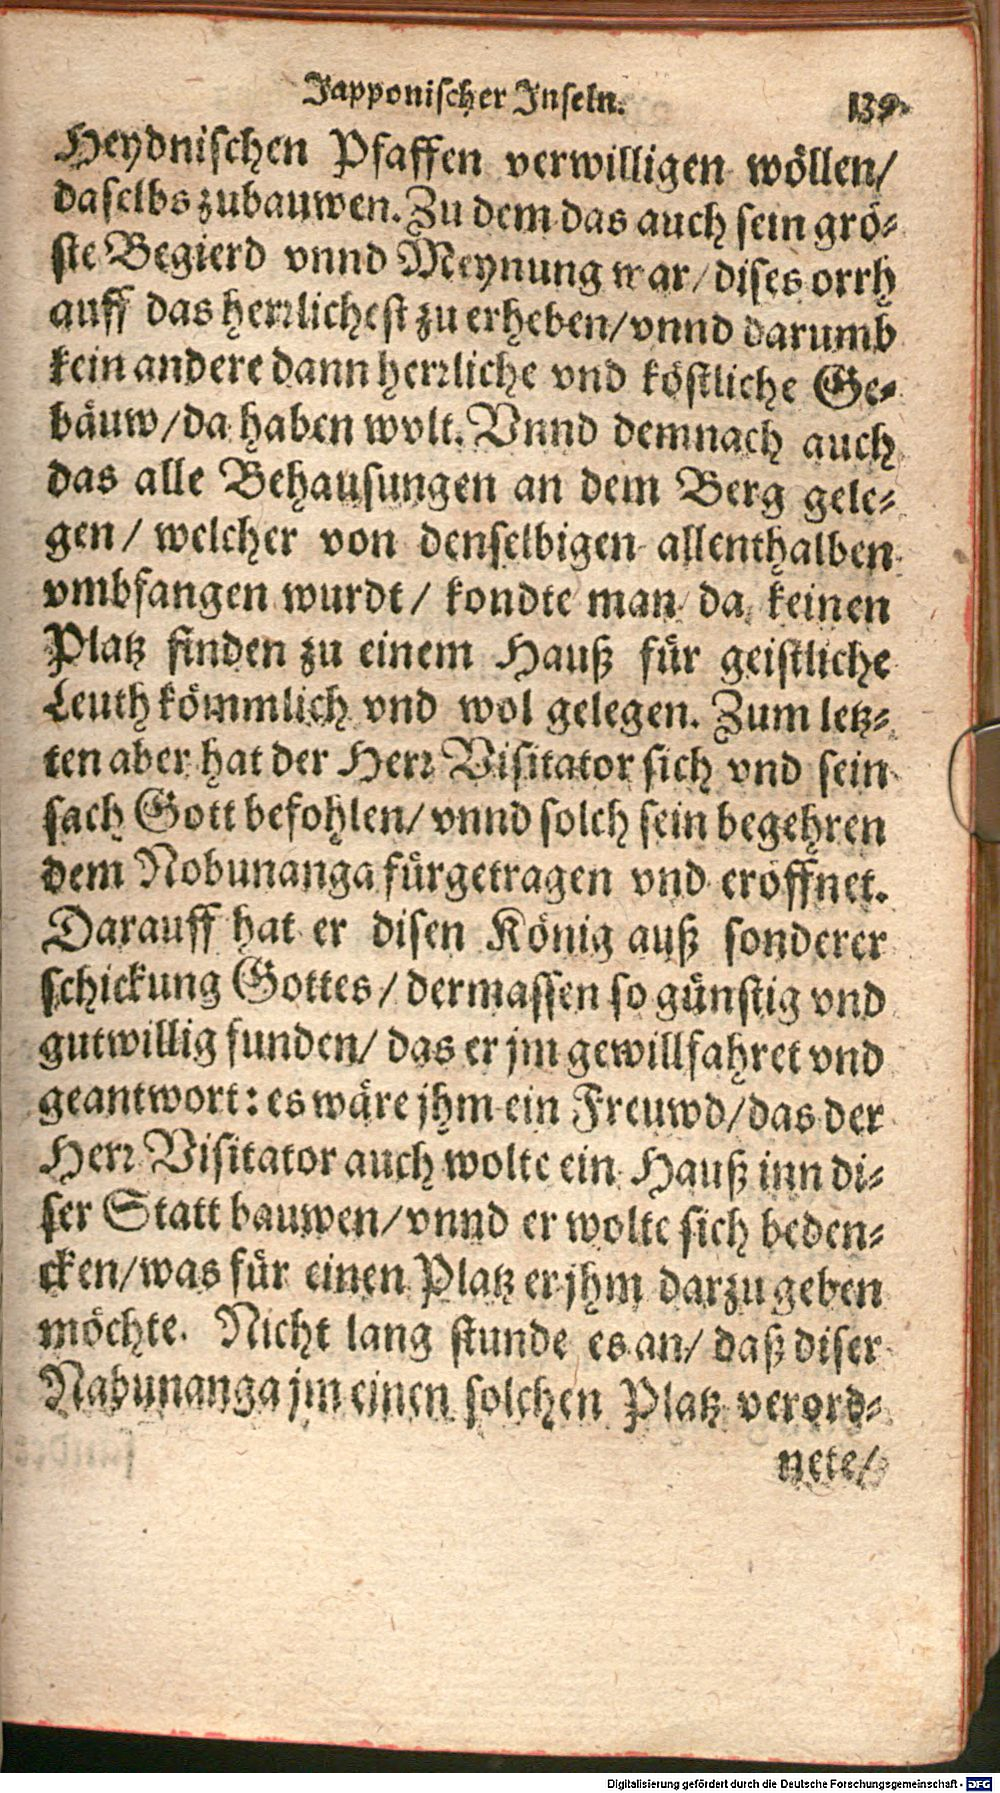 Japponischer Inseln. 139.
Heydnischen Pfaffen verwilligen wöllen/
daselbs zubauwen. Zu dem das auch sein grö-
ste Begierd vnnd Meynung war/ dises orrh
auff das herrlichest zu erheben/ vnnd darumb
kein andere dann herrliche vnd köstliche Ge-
bäuw/ da haben wolt. Vnnd demnach auch
das alle Behausungen an dem Berg gele-
gen/ welcher von denselbigen allenthalben
vmbfangen wurdt/ kondte man da keinen
Platz finden zu einem Hauß für geistliche
Leuth kömmlich vnd wol gelegen. Zum letz-
ten aber hat der Herr Visitator sich vnd sein
sach Gott befohlen/ vnnd solch sein begehren
dem Nobunanga fürgetragen vnd eröffnet.
Darauff hat er disen König auß sonderer
schickung Gottes/ dermassen so günstig vnd
gutwillig funden/ das er jm gewillfahret vnd
geantwort: es wäre jhm ein Freuwd/ das der
Herr Visitator auch wolte ein Hauß inn di-
ser Statt bauwen/ vnnd er wolte sich beden-
cken/ was für einen Platz er jhm darzu geben
möchte. Nicht lang stunde es an/ daß diser
Nabunanga jm einen solchen Platz verord-
nete/
Digitalisierung gefördert durch die Deutsche Forschungsgemeinschaft - DFG